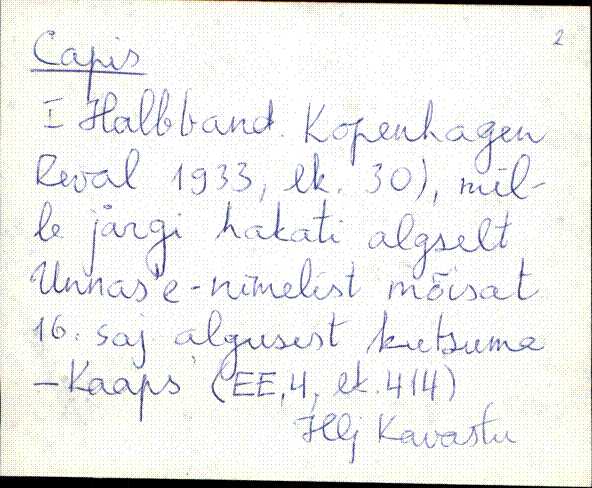 2
Capis
I Halbband. Kopenhagen
Reval 1933, lk. 30), mil-
le järgi hakati algselt
Unnas'e-nimelist mõisat
16. saj algusest kutsuma
-Kaaps (EE,4, lk.414)
Hlj Kavastu